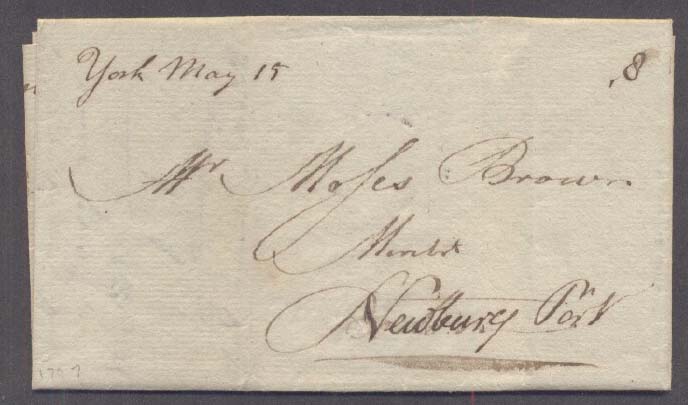 York May 15 8
Mr Moſes Brown
Mercht
Newbury Port